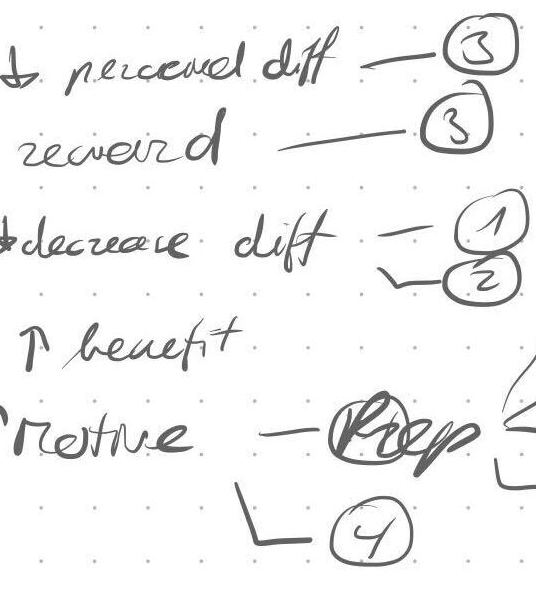 ↓ perceived diff — 3
reward — 3
↓ decrease diff — 1
2
↑ benefit
↑ Motive — Prep
4